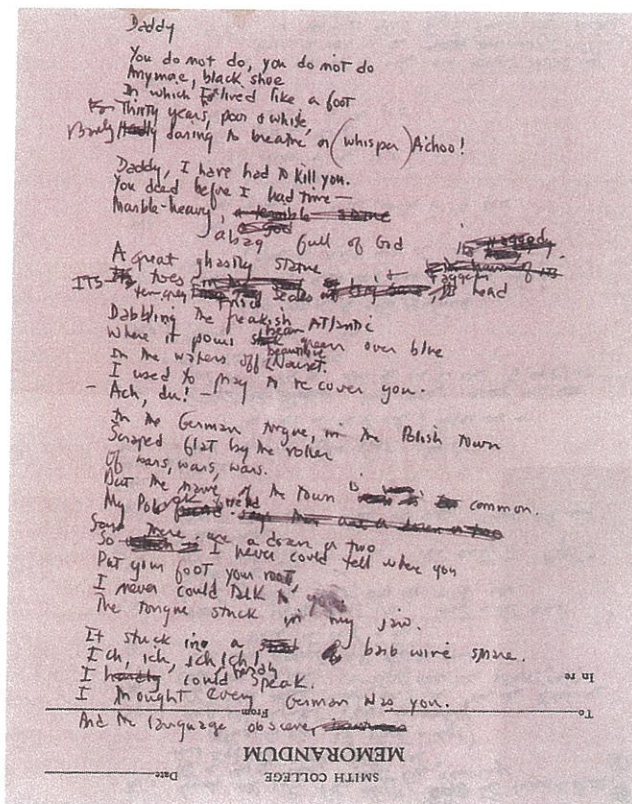 Daddy
You do not do, you do not do
Anymore, black shoe
In which I lived like a foot
For Thirty years, poor & white,
Barely daring to breathe or (whisper) Achoo!
Daddy, I have had to kill you.
You died before I had time—
Marble-heavy,
a bag full of God
A great ghastly statue
ITS toes
Frisco seal head
Dabbling the freakish Atlantic
Where it pours bean green over blue
In the waters off beautiful Nauset.
I used to pray to recover you.
— Ach, du! —
In the German tongue, in the Polish town
Scraped flat by the roller
Of wars, wars, wars.
But the name of the town is common.
My Polack friend
Says there are a dozen or two
So I never could tell where you
Put your foot, your root,
I never could talk to you.
The tongue stuck in my jaw.
It stuck in a barb wire snare.
Ich, ich, ich, ich,
I hardly could speak.
I thought every German was you.
And the language obscene,
In re
To From
MEMORANDUM
SMITH COLLEGE
Date